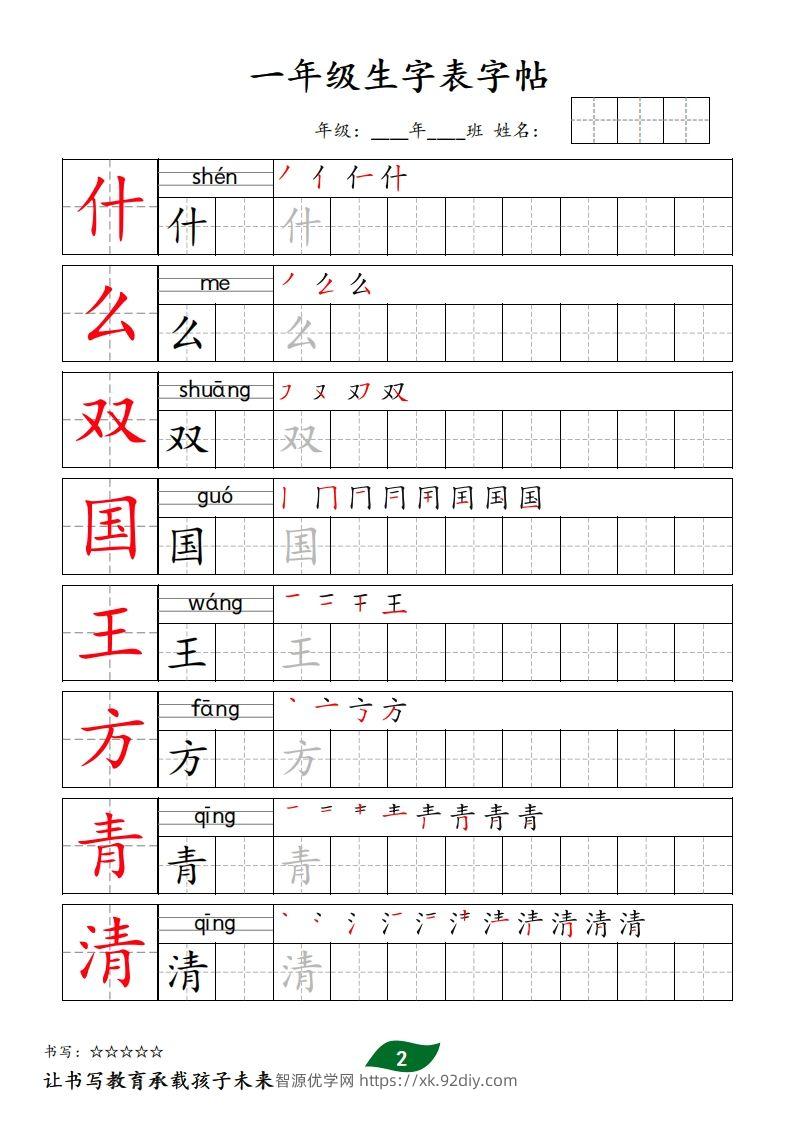 一年级生字表字帖
年级：____年____班 姓名：
什 shén 丿 亻 仁 什
什 什
么 me 丿 厶 么
么 么
双 shuāng フ 又 双
双 双
国 guó 丨 冂 国
国 国
王 wáng 一 二 干 王
王 王
方 fāng 丶 亠 方
方 方
青 qīng 一 二 青
青 青
清 qīng 丶 冫 氵 清
清 清
书写：☆☆☆☆☆
2
让书写教育承载孩子未来智源优学网 https://xk.92diy.com